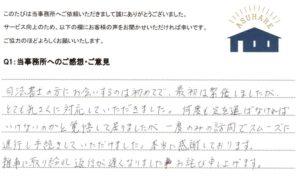 このたびは当事務所へご依頼いただきまして誠にありがとうございました。
サービス向上のため、以下の欄にお客様の声をお聞かせいただければ幸いです。
ご協力のほどよろしくお願いいたします。
ASUHARE
Q1:当事務所へのご感想・ご意見
司法書士の方にお会いするのは初めてで、最初は緊張しましたが、
とても気さくに対応していただきました。何度も足を運ばなければ
いけないのかと覚悟して居りましたが、一度のみの訪問でスムーズに
進行し手続きしていただけました。本当に感謝しております。
雑事に取り紛れ返信が遅くなりました お詫び申し上げます。